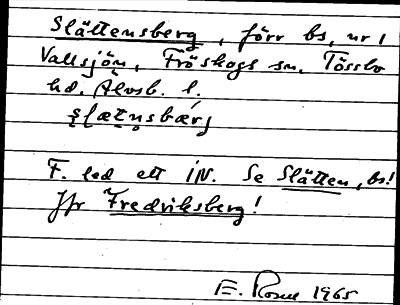 Slättensberg, förr bs, nr 1
Vallsjön, Fröskogs sn. Tössbo
hd. Älvsb. l.
slætnsbærj
F. led ett IN. Se Slätten, bs!
Jfr Fredriksberg!
E. Rosne 1965